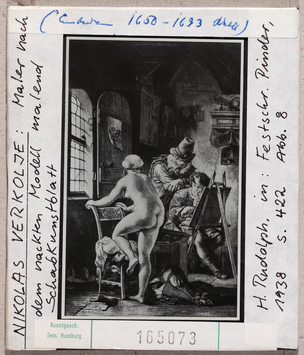 1650-1693
NIKOLAS VERKOLJE: Maler nach
dem nackten Modell malend
Schabkunstblatt
H. Rudolph, in: Festschr. Pinder,
1938 S. 422 Abb. 8
Kunstgesch.
Sem. Hamburg
165073